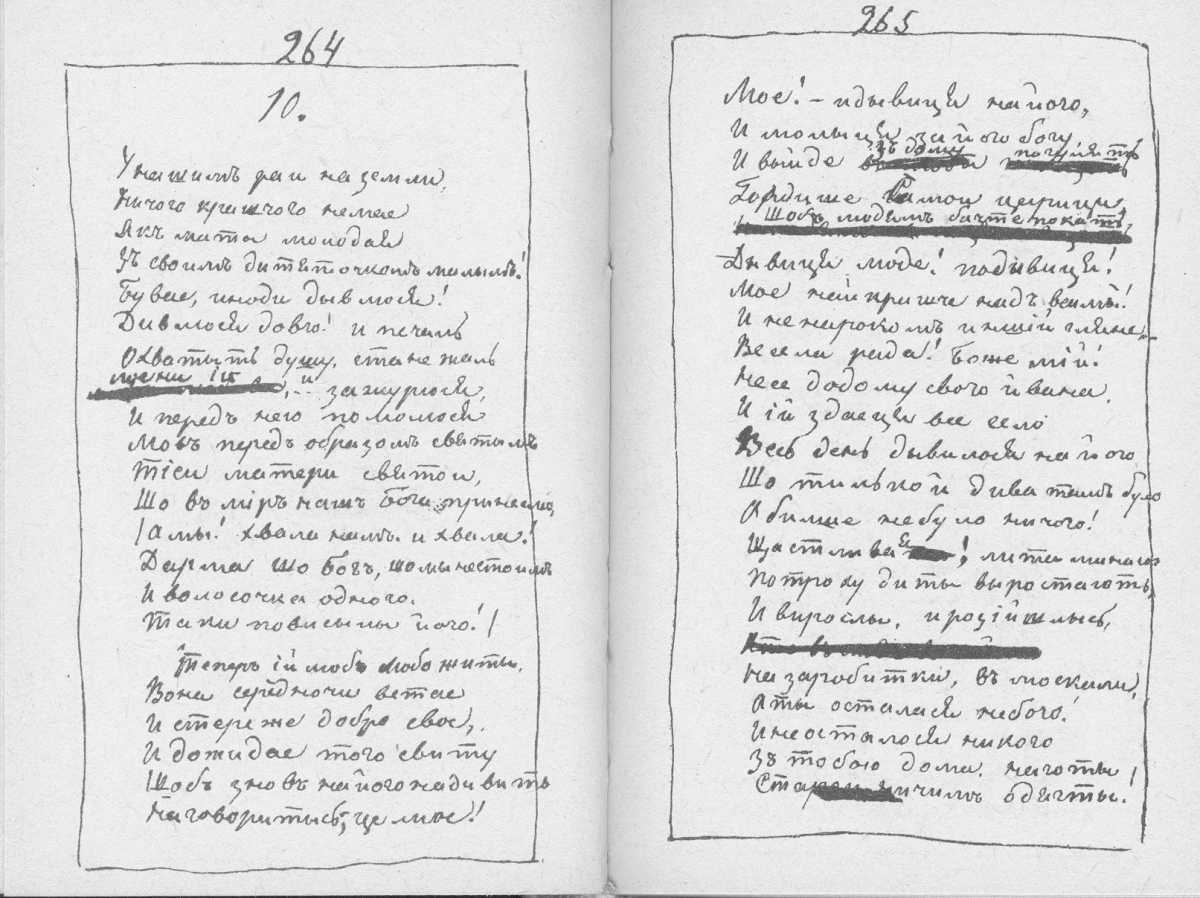 264
10.
У нашимъ раи на земли,
Ничого кращого немае
Якъ мата молодая
Зъ своимъ дитяточкомъ малымъ!
Бувае, иноди дывлюся!
Дивлюся довго! и печаль
Охватыть душу, стане жаль
мени ій, и зажурюся,
И передъ нею помолюся
Мовъ передъ образомъ святымъ
Тіеи матери святои,
Що въ міръ нашъ Бога принесла,
/ А мы! хвала намъ. и хвала!
Дарма що богъ, що мы нестоимъ
И волосочка одного.
Таки повисылы його! /
Теперъ ій любо любо жыты.
Вона середночи встае
И стереже добро свое,.
И дожидае того свиту
Щобъ зновъ на його надивить
Наговоритысь, це мое!
265
Мое! – и дывиця на його,
И молиця за його богу,
И выйде зъ дому погулять
Гордише самои цариця
Щобъ людямъ бачте показать,
Дывиця люде! подывиця!
Мое найкраще надъ всимы!
И ненарокомъ инший гляне,
Весела рада! Боже мій!
Несе додому свого йвана.
И ій здаеця все село
Весь день дывилося на його
Що тилько й дива тамъ було
А билше небуло ничого!
Щастливая! лита минаюг
Потроху диты выростають,
И вырослы, и розійшлысь,
На заробитки, въ москали,
А ты осталася небого!
И неосталося никого
Зъ тобою дома. наготы /
Стара ничимъ одигты!